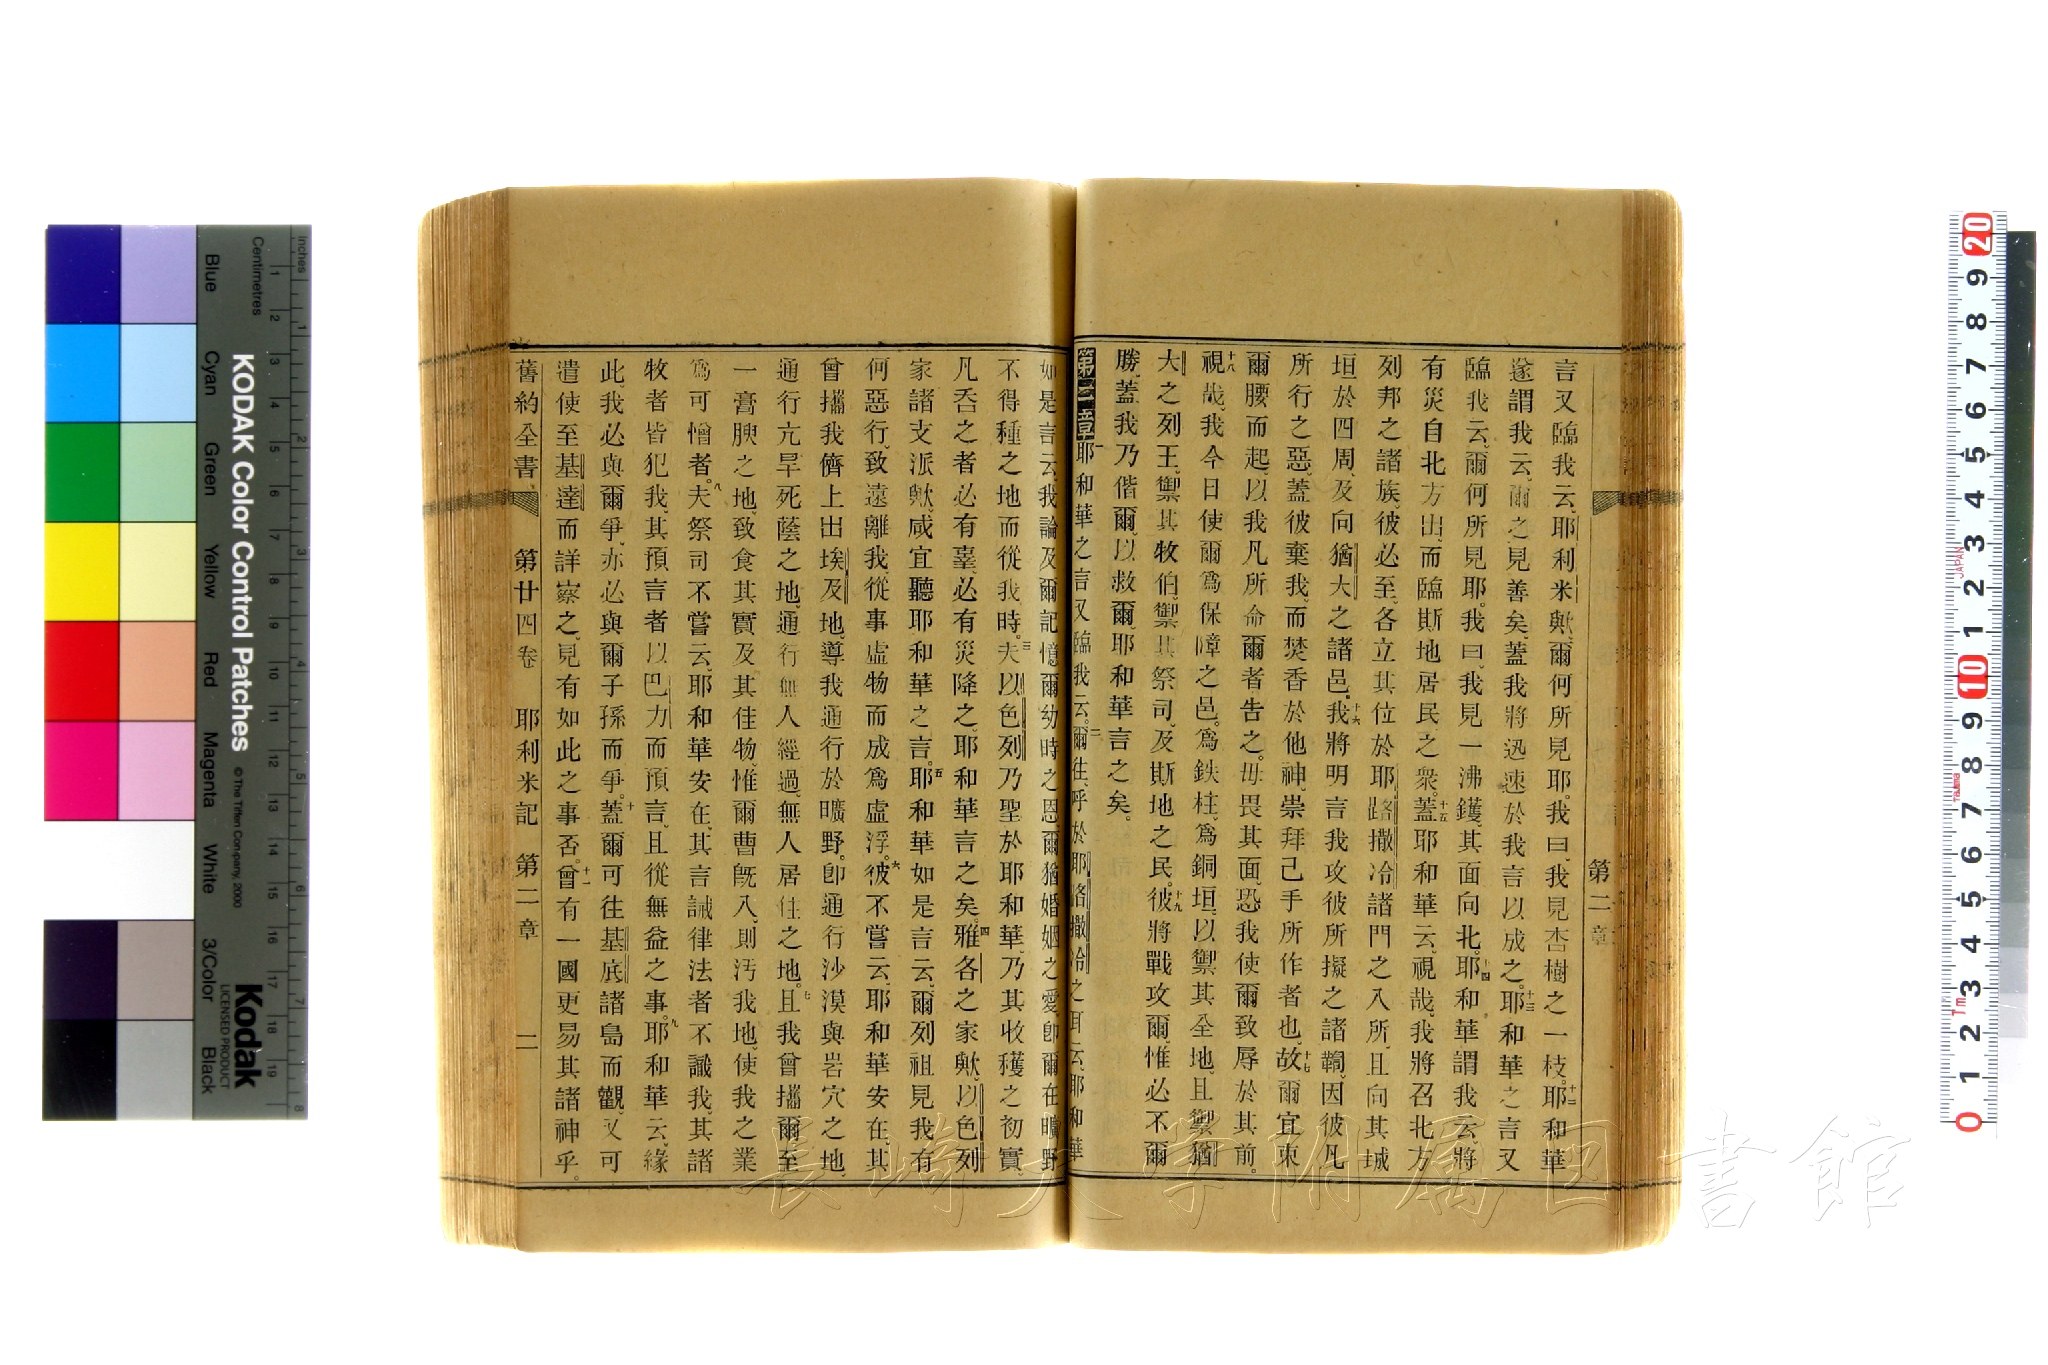 第二章
言又臨我云、耶利米歟、爾何所見耶。我曰、我見杏樹之一枝。十二耶和華
遂謂我云、爾之見善矣、蓋我將迅速於我言以成之。十三耶和華之言又
臨我云、爾何所見耶。我曰、我見一沸鑊、其面向北。十四耶和華謂我云、將
有災自北方出、而臨斯地居民之衆。十五蓋耶和華云、視哉、我將召北方
列邦之諸族、彼必至、各立其位於耶路撒冷諸門之入所、且向其城
垣於四周、及向猶大之諸邑。十六我將明言我攻彼所擬之諸鞫、因彼凡
所行之惡、蓋彼棄我、而焚香於他神、崇拜己手所作者也、十七故爾宜束
爾腰而起、以我凡所命爾者告之。毋畏其面、恐我使爾致辱於其前。
十八視哉、我今日使爾爲保障之邑、爲鉄柱、爲銅垣、以禦其全地、且禦猶
大之列王、禦其牧伯、禦其祭司、及斯地之民。十九彼將戰攻爾、惟必不爾
勝、蓋我乃偕爾、以救爾、耶和華言之矣。
第二章 一耶和華之言又臨我云。二爾往、呼於耶路撒冷之耳云、耶和華
如是言云、我論及爾記憶爾幼時之恩、爾猶婚姻之愛、卽爾在曠野
不得種之地而從我時。三夫以色列乃聖於耶和華、乃其收穫之初實。
凡呑之者必有辜、必有災降之、耶和華言之矣。四雅各之家歟、以色列
家諸支派歟、咸宜聽耶和華之言。五耶和華如是言云、爾列祖見我有
何惡行、致遠離我、從事虛物而成爲虛浮。六彼不嘗云、耶和華安在、其
曾攜我儕上出埃及地、導我通行於曠野。卽通行沙漠與岩穴之地、
通行亢旱死蔭之地、通行無人經過、無人居住之地。七且我曾攜爾至
一膏腴之地、致食其實及其佳物、惟爾曹旣入、則汚我地、使我之業
爲可憎者。八夫祭司不嘗云、耶和華安在、其言誡律法者不識我、其諸
牧者皆犯我、其預言者以巴力而預言、且從無益之事。九耶和華云、緣
此、我必與爾爭、亦必與爾子孫而爭。十蓋爾可往基底諸島而觀、又可
遣使至基達而詳察之、見有如此之事否。十一曾有一國更易其諸神乎。
舊約全書 第廿四卷 耶利米記 第二章 二
KODAK Color Control Patches
© The Tiffen Company, 2000
Kodak
LICENSED PRODUCT
Inches
Centimetres
Blue
Cyan
Green
Yellow
Red
Magenta
White
3/Color
Black
長崎大学附属図書館